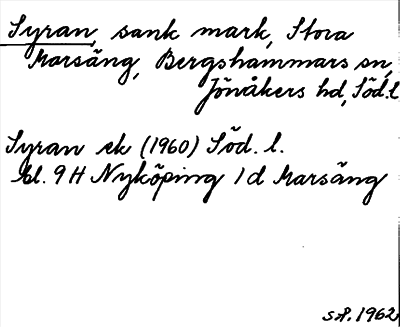 Syran, sank mark, Stora
Marsäng, Bergshammars sn,
Jönåkers hd, Söd.l.
Syran ek (1960) Söd. l.
bl. 9H Nyköping 1d Marsäng
s.P. 1962